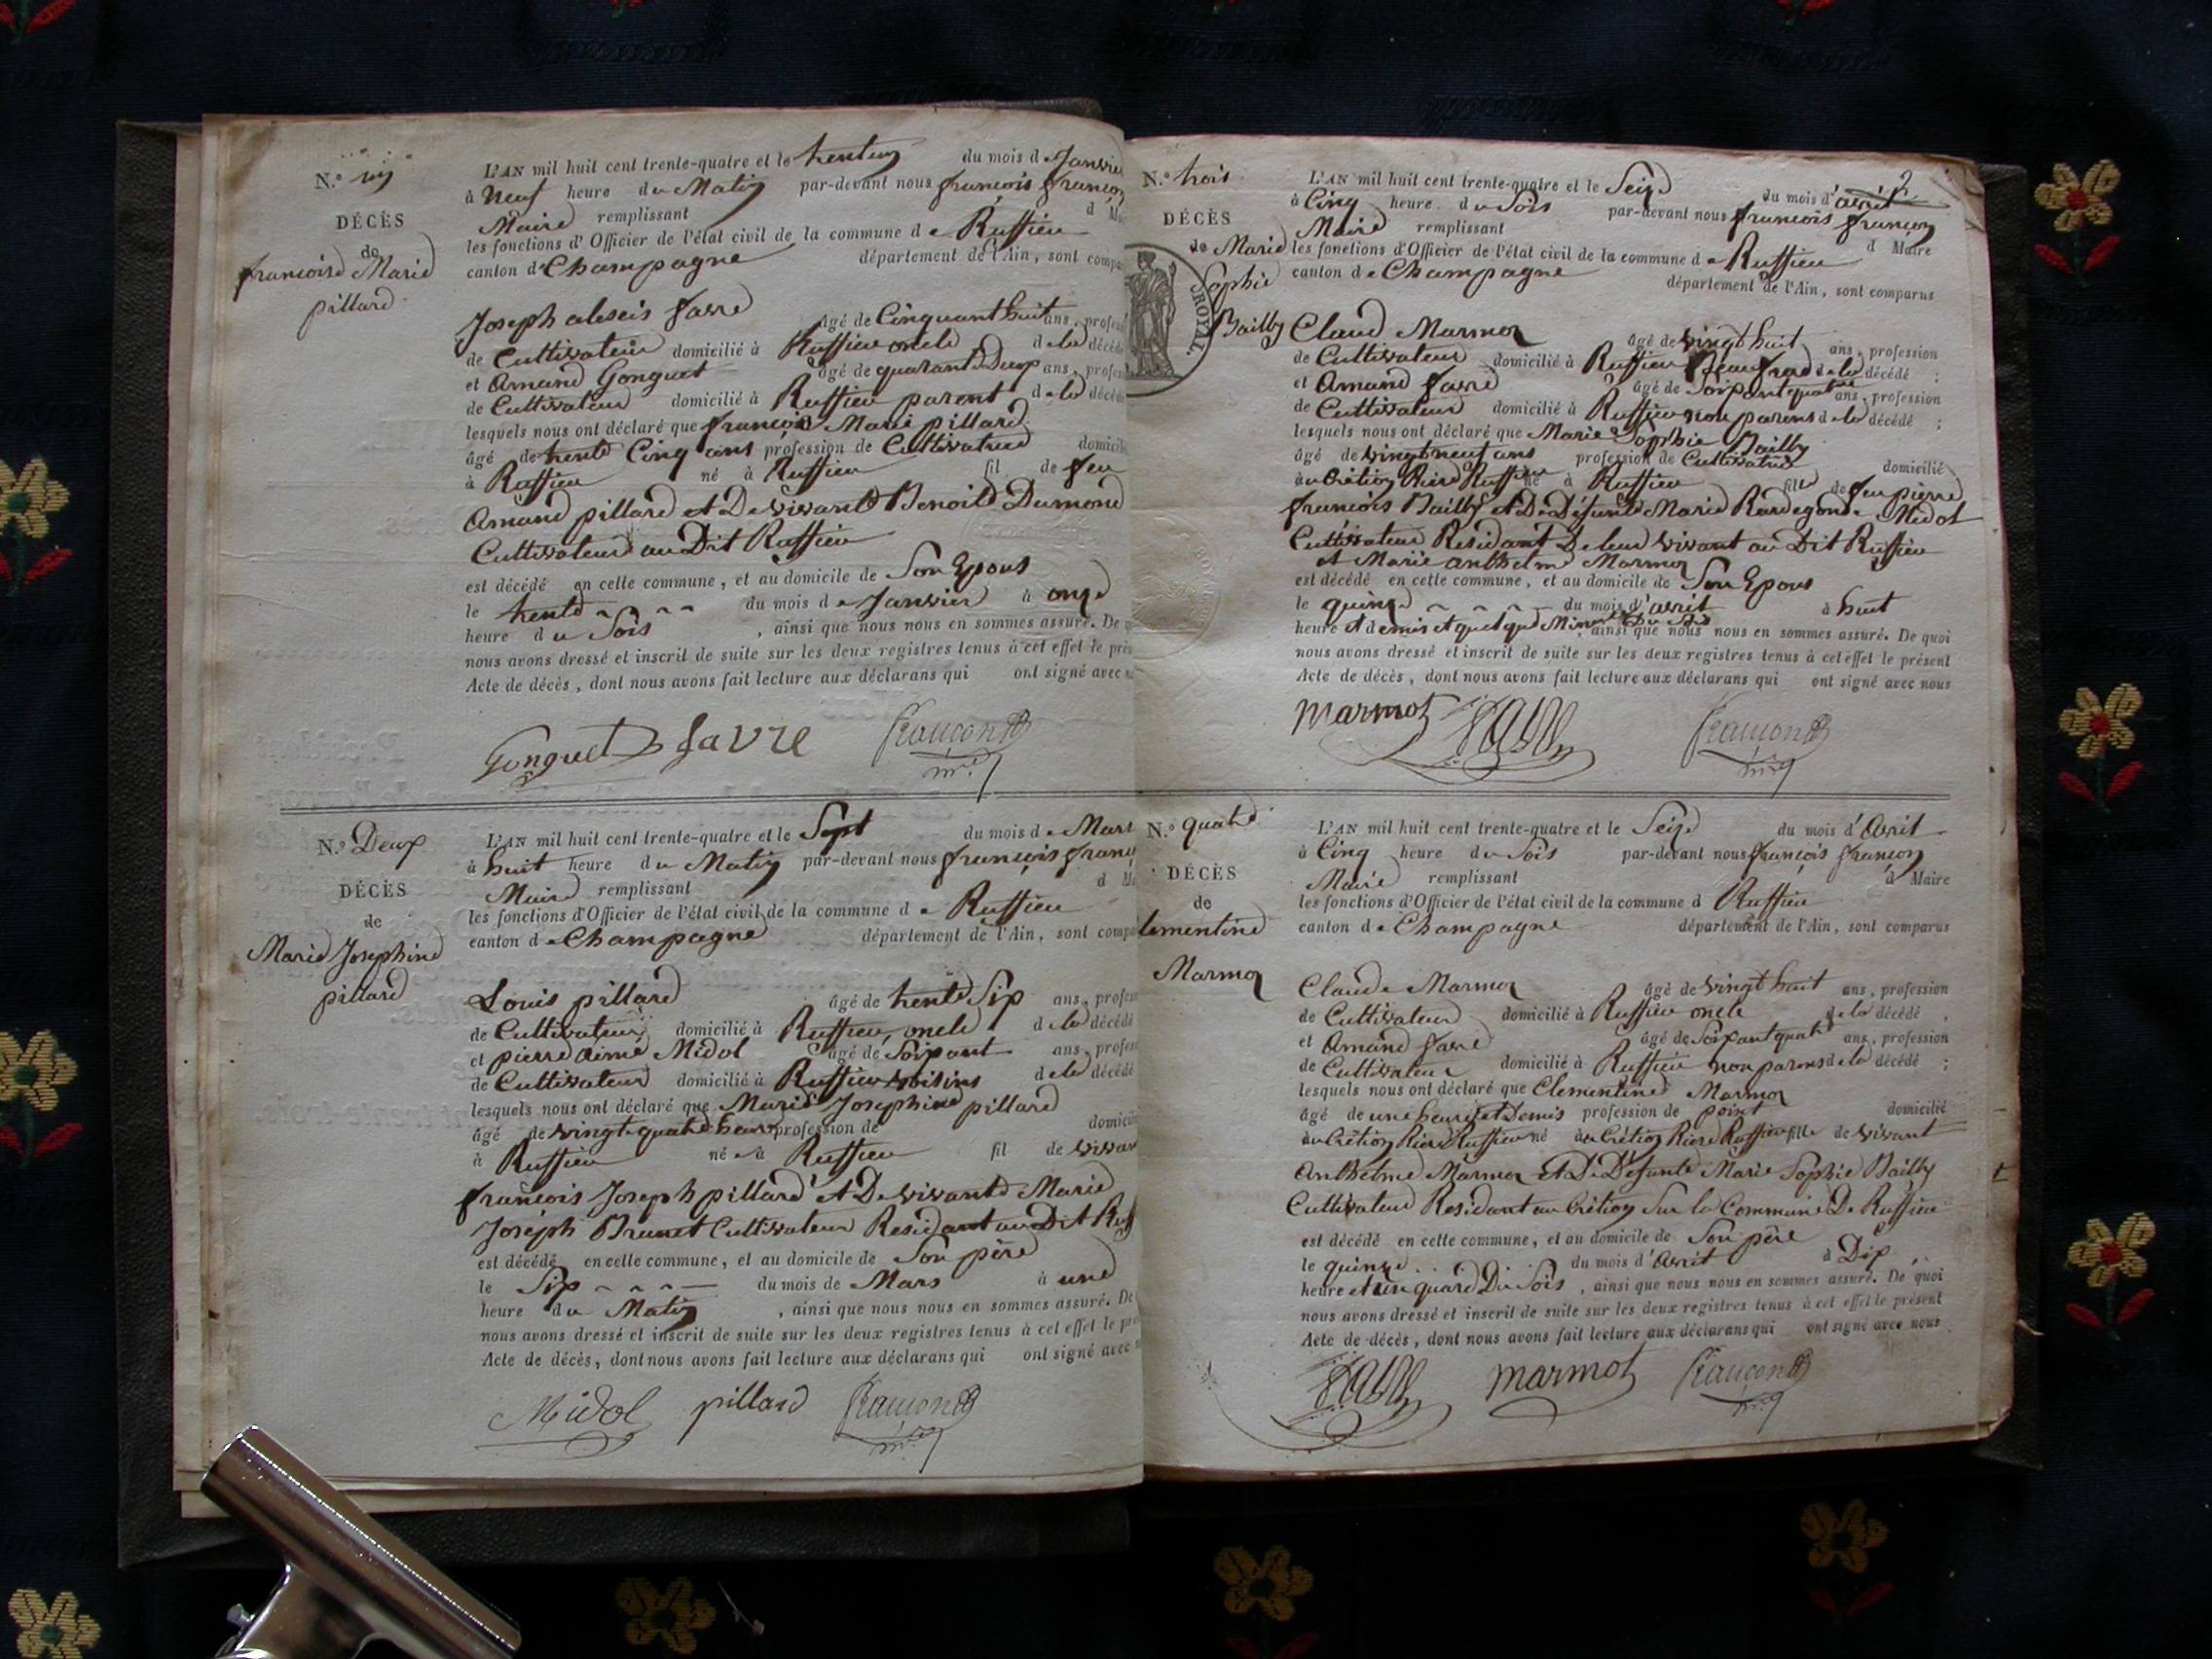 N.º un
DÉCÈS
de
françoise Marie
pillard
L'AN mil huit cent trente-quatre et le trente un du mois de Janvier
à neuf heure du Matin par-devant nous françois françon
Maire remplissant d
les fonctions d'Officier de l'état civil de la commune de Ruffieu
canton de Champagne département de l'Ain, sont
Joseph alexis favre âgé de Cinquant huit ans, profes
de Cultivateur domicilié à Ruffieu oncle de la décédé
et Amand Gonguet âgé de quarante Deux ans, profes
de Cultivateur domicilié à Ruffieu parent de la décédé
lesquels nous ont déclaré que françoise Marie pillard
âgé de trente Cinq ans profession de Cultivatrice domicilié
à Ruffieu né à Ruffieu fil de feu
Amand pillard et De vivante Benoite Dumond
Cultivateur au Dit Ruffieu
est décédé en cette commune, et au domicile de Son Epous
le trente du mois de Janvier à onze
heure du Soir, ainsi que nous nous en sommes assuré. De
nous avons dressé et inscrit de suite sur les deux registres tenus à cet effet le pré
Acte de décès, dont nous avons fait lecture aux déclarans qui ont signé avec
Gonguet favre françon
m.re
N.º Deux
DÉCÈS
de
Marie Josephine
pillard
L'AN mil huit cent trente-quatre et le Sept du mois de Mars
à huit heure du Matin par-devant nous françois franç
Maire remplissant d
les fonctions d'Officier de l'état civil de la commune de Ruffieu
canton de Champagne département de l'Ain, sont comp
Louis pillard âgé de trente Six ans, profes
de Cultivateur domicilié à Ruffieu, oncle de la décédé
et pierre aimé Midol âgé de Soixant ans, profes
de Cultivateur domicilié à Ruffieu voisins de la décédé
lesquels nous ont déclaré que Marie Josephine pillard
âgé de vingt quatre heur profession de domicilié
à Ruffieu né à Ruffieu fil de vivan
françois Joseph pillard et De vivante Marie
Joseph Brunet Cultivateur Residant au Dit Ruff
est décédé en cette commune, et au domicile de Son père
le Six du mois de Mars à une
heure du Matin, ainsi que nous nous en sommes assuré. De
nous avons dressé et inscrit de suite sur les deux registres tenus à cet effet le pré
Acte de décès, dont nous avons fait lecture aux déclarans qui ont signé avec
Midol pillard françon
m.re
2.
N.º trois
DÉCÈS
de Marie
Sophie
Bailly
ROYAL.
L'AN mil huit cent trente-quatre et le Seize du mois d'avril
à Cinq heure du Soir par-devant nous françois françon
Maire remplissant d Maire
les fonctions d'Officier de l'état civil de la commune de Ruffieu
canton de Champagne département de l'Ain, sont comparus
Claude Marmoz âgé de vingt huit ans, profession
de Cultivateur domicilié à Ruffieu Beaufrere de la décédé ;
et Amand favre âgé de Soixant quatre ans, profession
de Cultivateur domicilié à Ruffieu non parens de la décédé ;
lesquels nous ont déclaré que Marie Sophie Bailly
âgé de vingt neuf ans profession de Cultivatrice domicilié
au Crétion Riere Ruffieu né à Ruffieu fille de feu pierre
françois Bailly et De Défunte Marie Rardegonde Midol
Cultivateur Residant De leur vivant au Dit Ruffieu
et Marie anthelme Marmoz
est décédé en cette commune, et au domicile de Son Epous
le quinze du mois d'avril à huit
heure et demis et quelque Minute Du Soir, ainsi que nous nous en sommes assuré. De quoi
nous avons dressé et inscrit de suite sur les deux registres tenus à cet effet le présent
Acte de décès, dont nous avons fait lecture aux déclarans qui ont signé avec nous
marmoz favre françon
m.re
N.º quatre
DÉCÈS
de
lementine
Marmoz
L'AN mil huit cent trente-quatre et le Seize du mois d'Avril
à Cinq heure du Soir par-devant nous françois françon
Maire remplissant d Maire
les fonctions d'Officier de l'état civil de la commune d Ruffieu
canton de Champagne département de l'Ain, sont comparus
Claude Marmoz âgé de vingt huit ans, profession
de Cultivateur domicilié à Ruffieu oncle de la décédé ,
et Amand favre âgé de Soixant quatre ans, profession
de Cultivateur domicilié à Ruffieu non parens de la décédé ;
lesquels nous ont déclaré que Clementine Marmoz
âgé de une heure et demis profession de point domicilié
au Crétion Riere Ruffieu né au Crétion Riere Ruffieu fille de vivant
Anthelme Marmoz Et De Défunte Marie Sophie Bailly
Cultivateur Residant au Crétion Sur la Commune De Ruffieu
est décédé en cette commune, et au domicile de Son père
le quinze du mois d'Avril à Dix
heure et un quard Du Soir, ainsi que nous nous en sommes assuré. De quoi
nous avons dressé et inscrit de suite sur les deux registres tenus à cet effet le présent
Acte de décès, dont nous avons fait lecture aux déclarans qui ont signé avec nous
favre marmoz françon
m.re